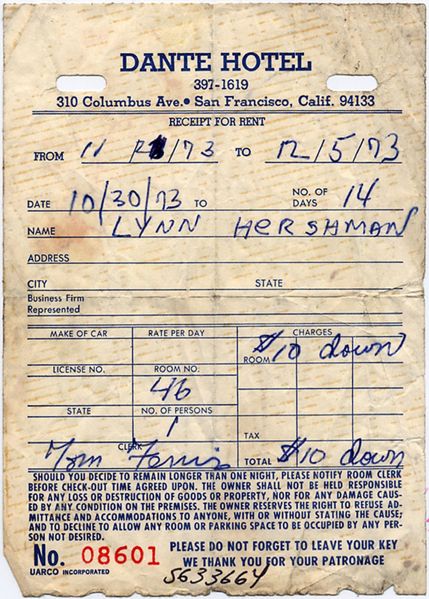 DANTE HOTEL
397-1619
310 Columbus Ave.• San Francisco, Calif. 94133
RECEIPT FOR RENT
FROM 11 /73 TO 12/5/73
DATE 10/30/73 TO NO. OF DAYS 14
NAME LYNN HERSHMAN
ADDRESS
CITY STATE
Business Firm
Represented
MAKE OF CAR RATE PER DAY CHARGES
ROOM $10 down
LICENSE NO. ROOM NO.
46
STATE NO. OF PERSONS
1
CLERK TAX
Tom TOTAL $10 down
SHOULD YOU DECIDE TO REMAIN LONGER THAN ONE NIGHT, PLEASE NOTIFY ROOM CLERK
BEFORE CHECK-OUT TIME AGREED UPON. THE OWNER SHALL NOT BE HELD RESPONSIBLE
FOR ANY LOSS OR DESTRUCTION OF GOODS OR PROPERTY, NOR FOR ANY DAMAGE CAUS-
ED BY ANY CONDITION ON THE PREMISES. THE OWNER RESERVES THE RIGHT TO REFUSE AD-
MITTANCE AND ACCOMMODATIONS TO ANYONE, WITH OR WITHOUT STATING THE CAUSE;
AND TO DECLINE TO ALLOW ANY ROOM OR PARKING SPACE TO BE OCCUPIED BY ANY PER-
SON NOT DESIRED.
No. 08601 PLEASE DO NOT FORGET TO LEAVE YOUR KEY
WE THANK YOU FOR YOUR PATRONAGE
UARCO INCORPORATED
5633664